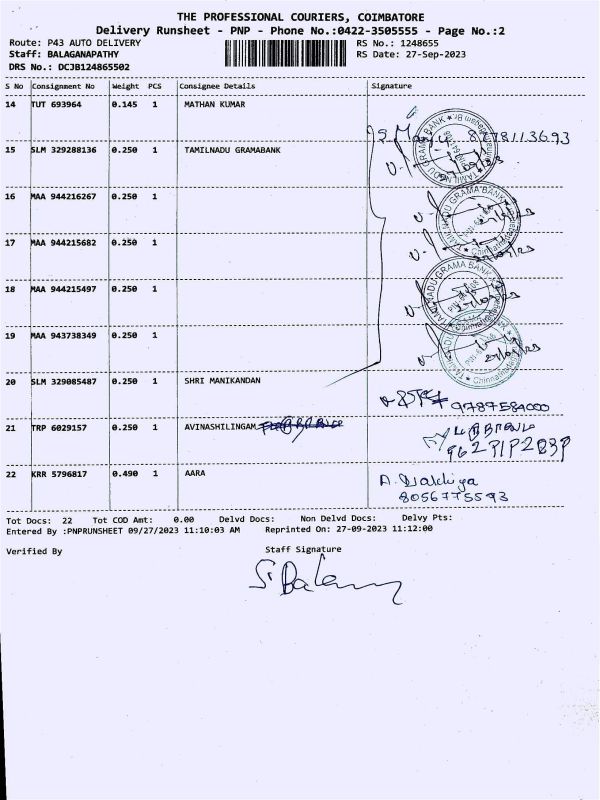 THE PROFESSIONAL COURIERS, COIMBATORE
Delivery Runsheet - PNP - Phone No.:0422-3505555 - Page No.:2
Route: P43 AUTO DELIVERY RS No.: 1248655
Staff: BALAGANAPATHY RS Date: 27-Sep-2023
DRS No.: DCJB124865502
S No Consignment No Weight PCS Consignee Details Signature
14 TUT 693964 0.145 1 MATHAN KUMAR
15 SLM 329288136 0.250 1 TAMILNADU GRAMABANK
16 MAA 944216267 0.250 1
17 MAA 944215682 0.250 1
18 MAA 944215497 0.250 1
19 MAA 943738349 0.250 1
20 SLM 329085487 0.250 1 SHRI MANIKANDAN
9787584000
21 TRP 6029157 0.250 1 AVINASHILINGAM
22 KRR 5796817 0.490 1 AARA
8056775593
Tot Docs: 22 Tot COD Amt: 0.00 Delvd Docs: Non Delvd Docs: Delvy Pts:
Entered By :PNPRUNSHEET 09/27/2023 11:10:03 AM Reprinted On: 27-09-2023 11:12:00
Verified By Staff Signature
S. Balamy